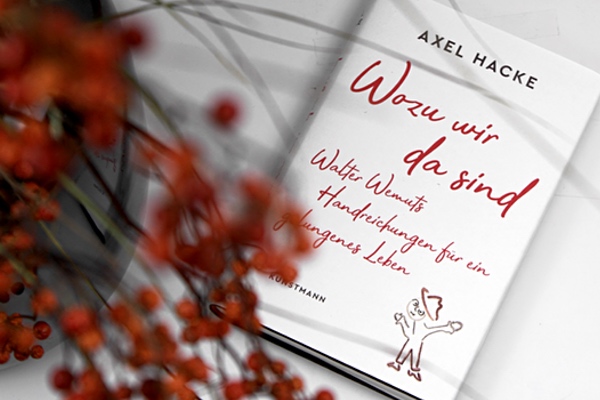 AXEL HACKE
Wozu wir
da sind
Walter Wemuts
Handreichungen für ein
gelungenes Leben
KUNSTMANN